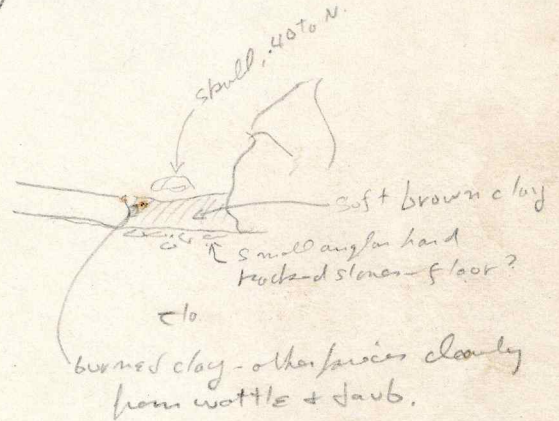 skull, .40 to N.
soft brown clay
small angular hard
packed stones - floor?
burned clay - other pieces clearly
from wattle & daub.